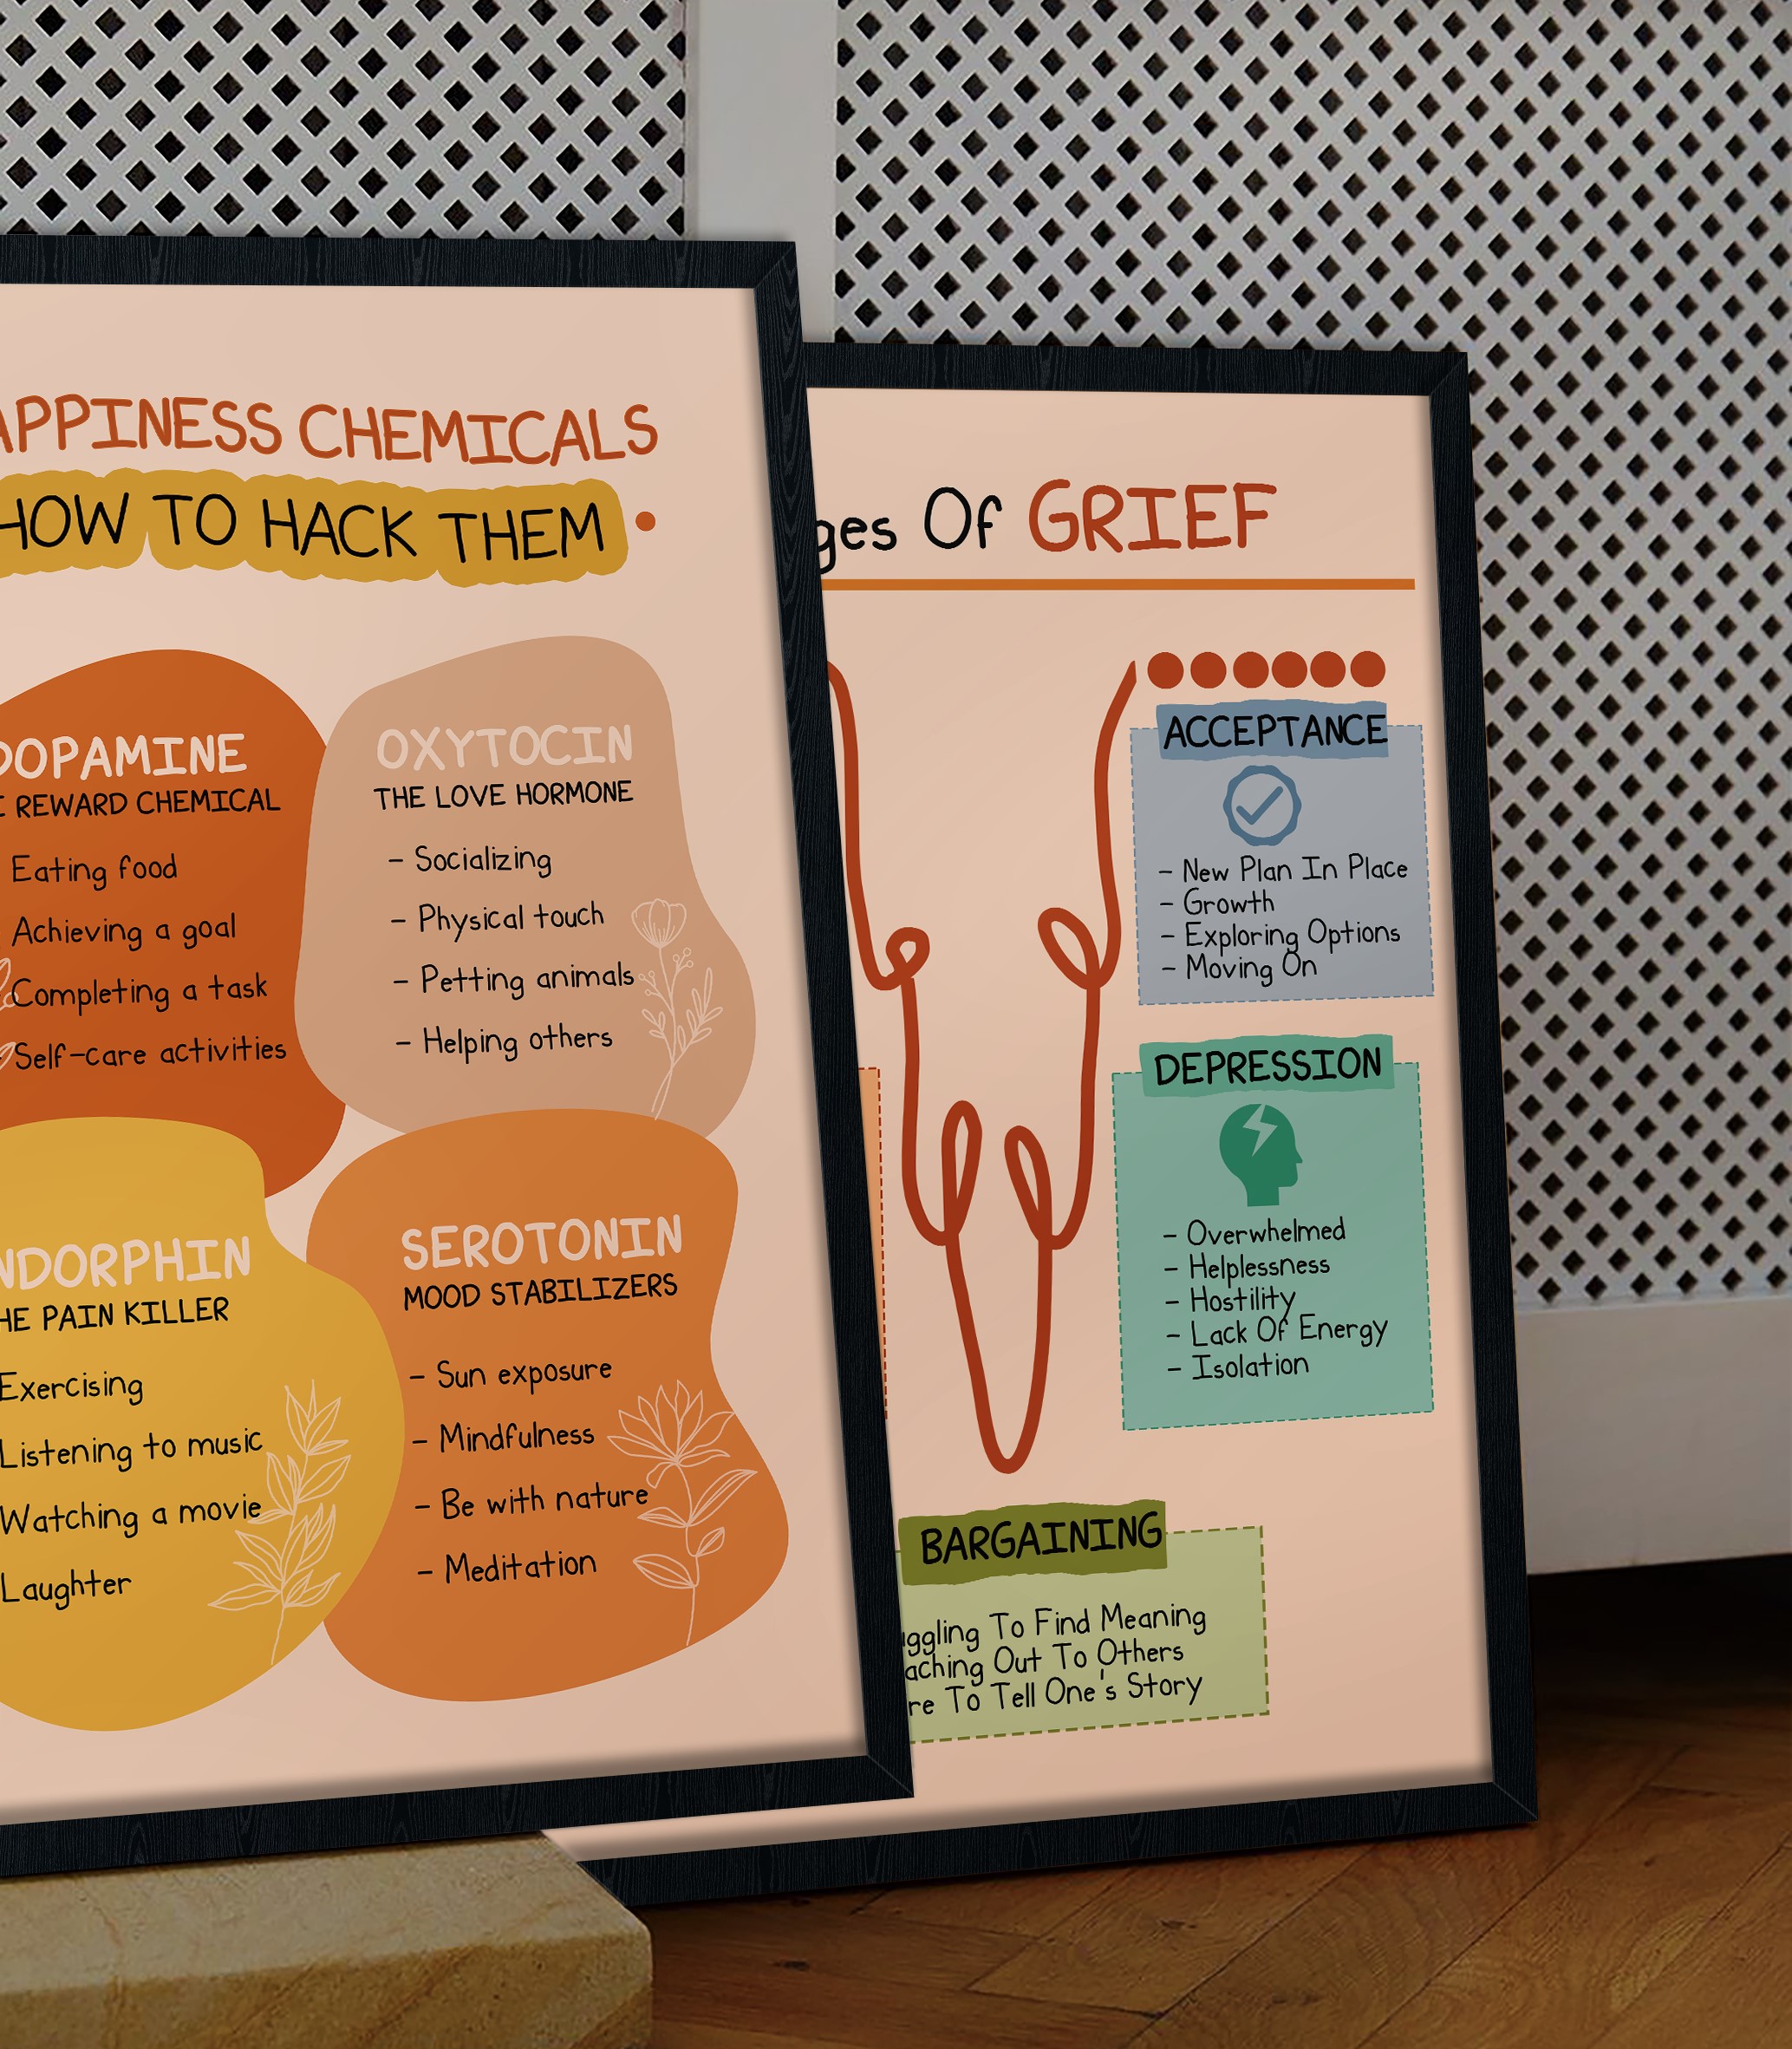 APPINESS CHEMICALS
HOW TO HACK THEM
DOPAMINE
REWARD CHEMICAL
Eating food
Achieving a goal
Completing a task
Self-care activities
OXYTOCIN
THE LOVE HORMONE
- Socializing
- Physical touch
- Petting animals
- Helping others
NDORPHIN
HE PAIN KILLER
Exercising
Listening to music
Watching a movie
Laughter
SEROTONIN
MOOD STABILIZERS
- Sun exposure
- Mindfulness
- Be with nature
- Meditation
ges Of GRIEF
ACCEPTANCE
- New Plan In Place
- Growth
- Exploring Options
- Moving On
DEPRESSION
- Overwhelmed
- Helplessness
- Hostility
- Lack Of Energy
- Isolation
BARGAINING
ggling To Find Meaning
aching Out To Others
re To Tell One's Story